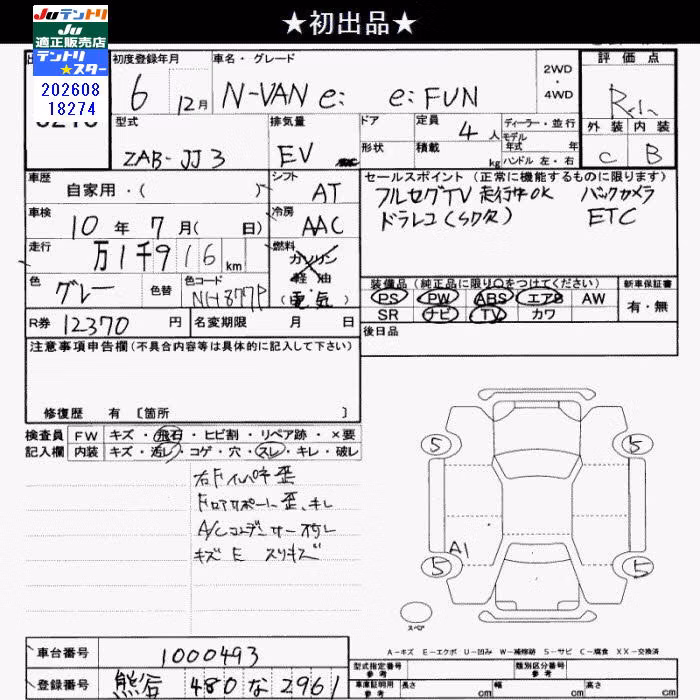 ★初出品★
Juテントリ
Ju
適正販売店
テントリ
★スター
202608
18274
初度登録年月
6 12月
車名・グレード
N-VAN e: e:FUN
2WD
・
4WD
評価点
外装 内装
C B
型式
ZAB-JJ3
排気量
EV
ドア
形状
定員 4 人
積載 kg
ディーラー・並行
モデル
年式 年
ハンドル 左・右
車歴
自家用・( )
シフト AT
車検
10年 7月( 日)
冷房 AAC
走行
万1千916 km
燃料
ガソリン
軽油
(電気)
色 グレー
色替
色コード
NH877P
R券 12370 円
名変期限 月 日
セールスポイント(正常に機能するものに限ります)
フルセグTV 走行中OK バックカメラ
ドラレコ(SD欠) ETC
装備品(純正品に限り○をつけてください)
PS PW ABS エアB AW
SR ナビ TV カワ
新車保証書
有・無
後日品
注意事項申告欄(不具合内容等は具体的に記入して下さい)
修復歴 有 〔箇所 〕
検査員
記入欄
FW キズ・飛石・ヒビ割・リペア跡・×要
内装 キズ・汚レ・コゲ・穴・スレ・キレ・破レ
右Fインパネ歪
Fロアサポート歪、キレ
A/Cコンデンサー汚レ
キズ E スリキズ
5 5
A1
5 5
スペア
A-キズ E-エクボ U-凹み W-補修跡 S-サビ C-腐食 XX-交換済
車台番号 1000493
登録番号 熊谷 480 な 2961
型式指定番号
参考
類別区分番号
参考
車庫証明用
参考
長さ cm 幅 cm 高さ cm